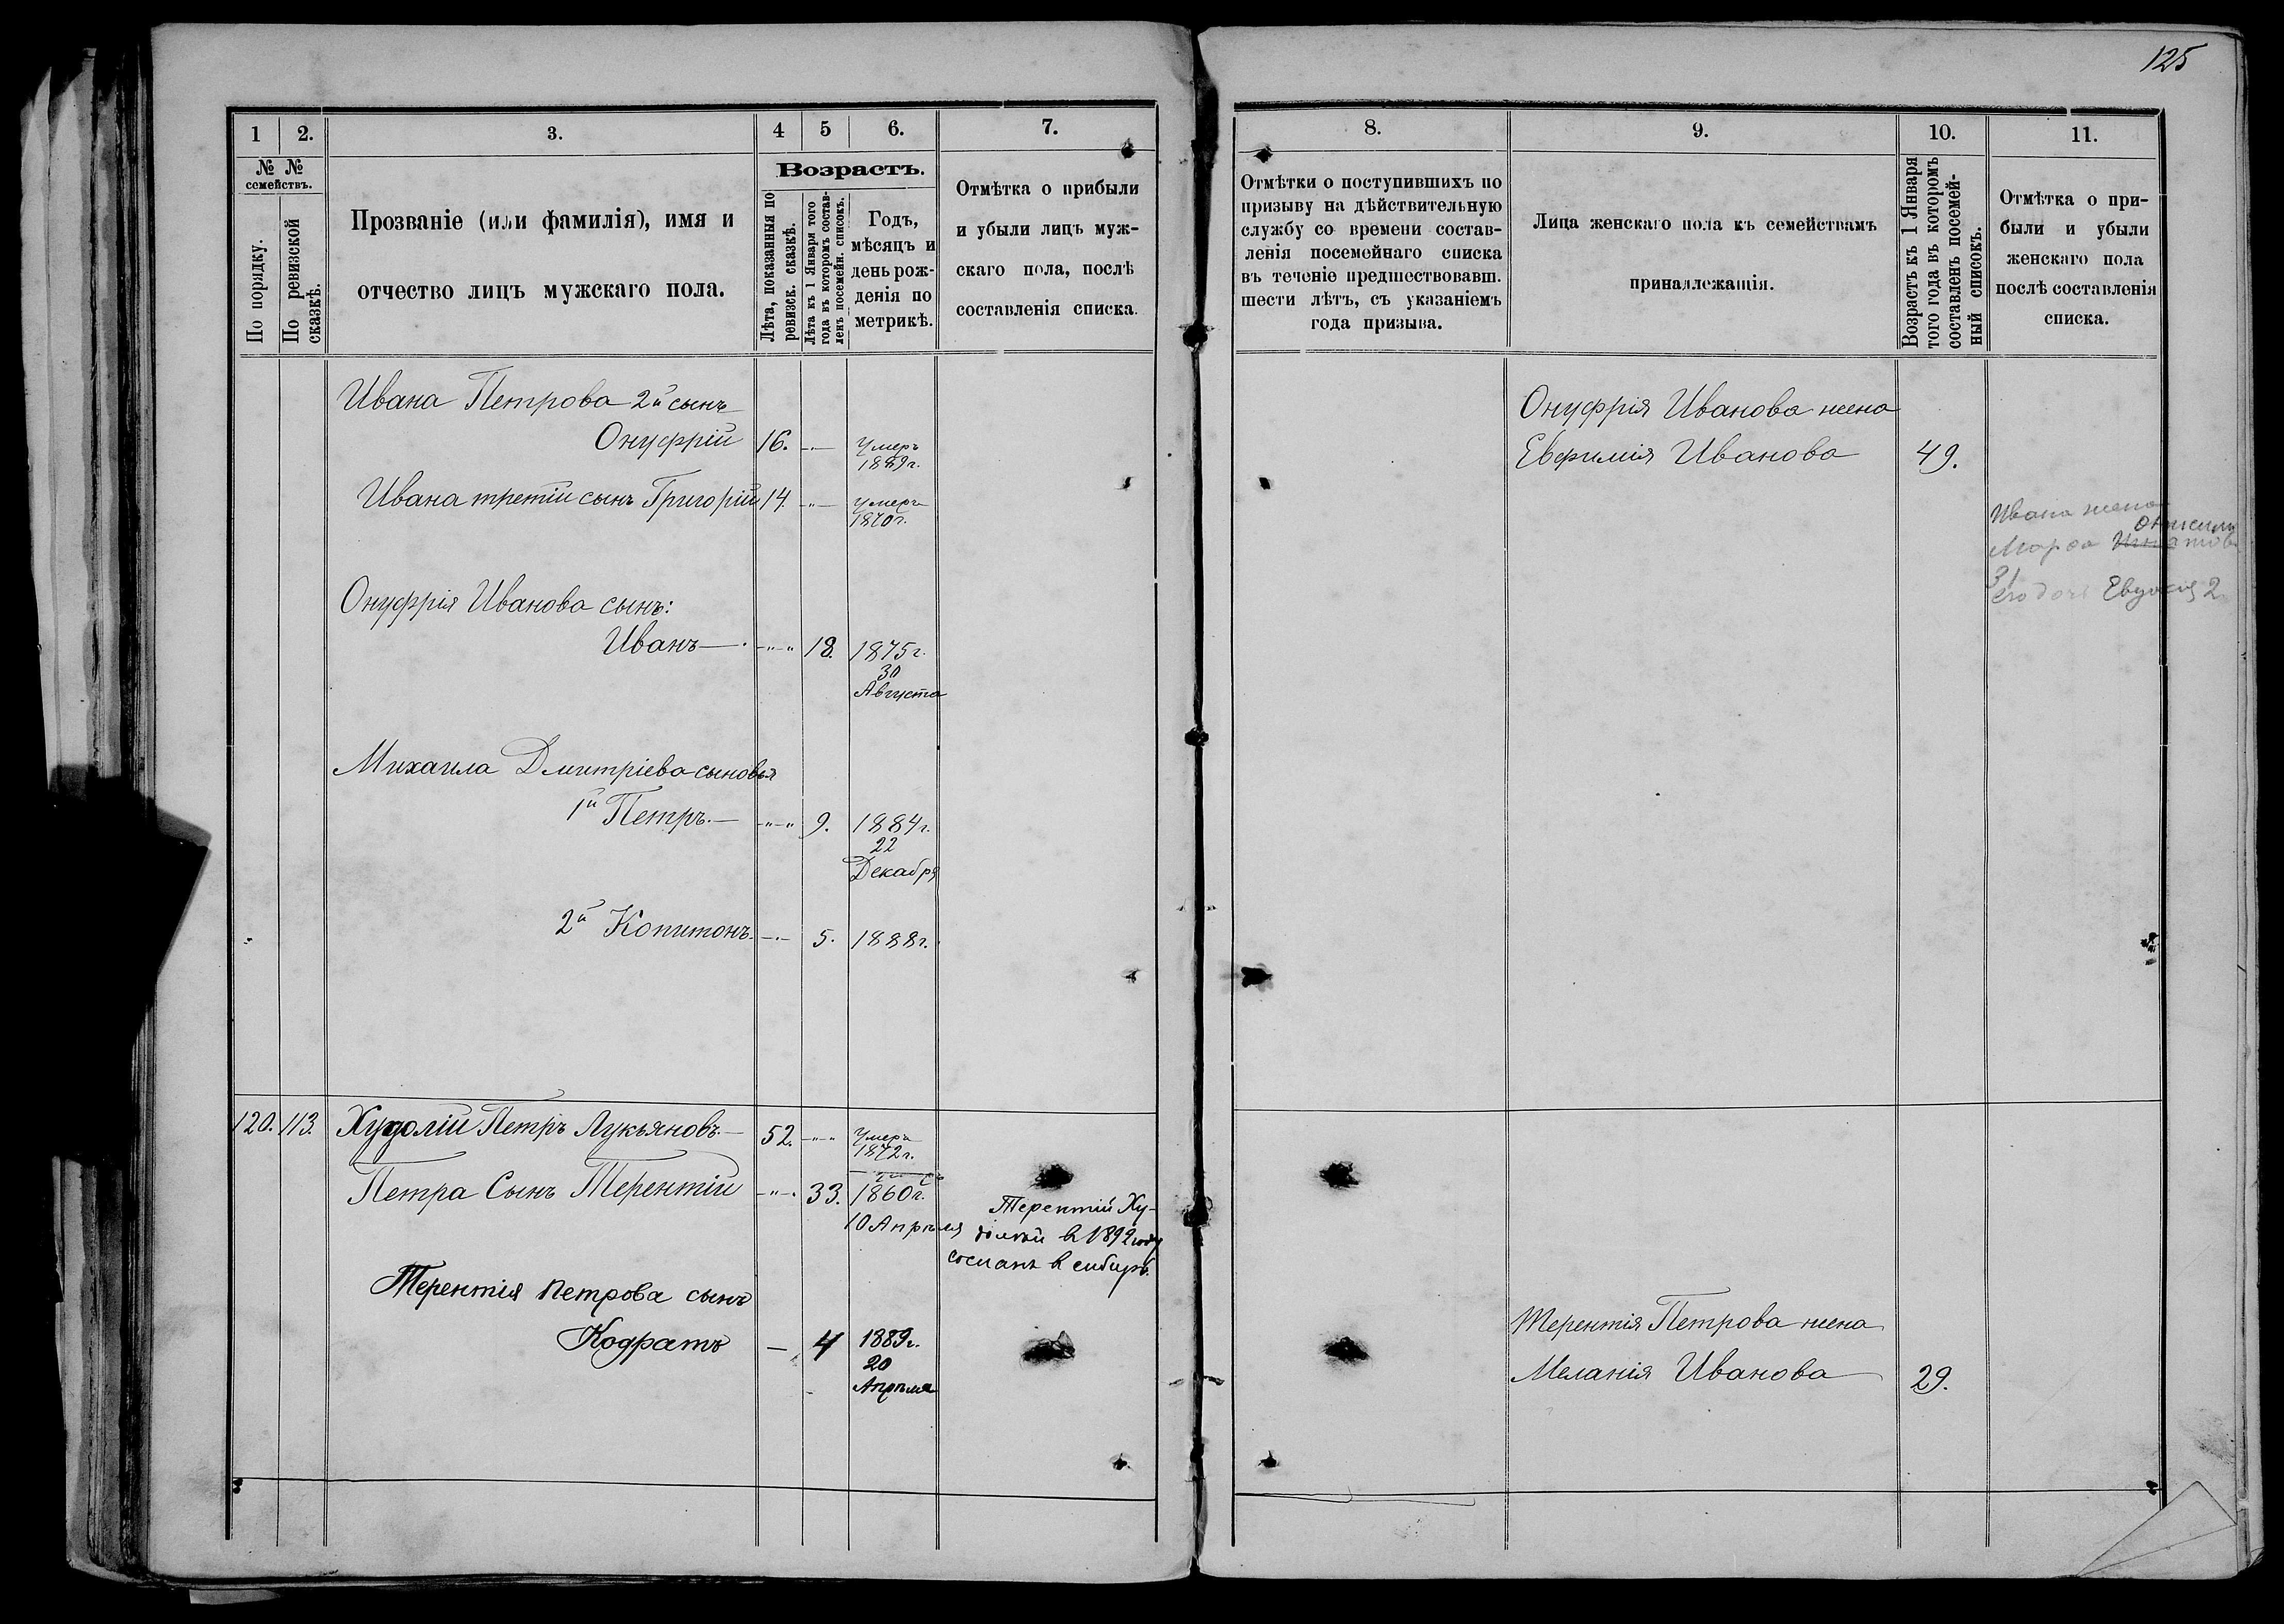 125
1
2.
3.
4
5
6.
7.
№ №
семействъ.
По порядку.
По ревизской
сказкѣ.
Прозваніе (или фамилія), имя и
отчество лицъ мужскаго пола.
Возрастъ.
Лѣта, показанныя по
ревизск. сказкѣ.
Лѣта къ 1 Января того
года въ которомъ состав-
ленъ посемейн. списокъ.
Годъ,
мѣсяцъ и
день рож-
денія по
метрикѣ.
Отмѣтка о прибыли
и убыли лицъ муж-
скаго пола, послѣ
составленія списка.
Ивана Петрова 2й сынъ
Онуфрій 16. —"— Умеръ
1889г.
Ивана третій сынъ Григорій 14. —"— Умеръ
1870г.
Онуфрія Иванова сынъ:
Иванъ — —"—" 18. 1875г.
30
Августа
Михаила Дмитріева сыновья
1й Петръ. — —"—" 9. 1884г.
22
Декабря
2й Копитонъ — —"— 5. 1888г.
120. 113. Худолій Петръ Лукьяновъ — 52. —"—" Умеръ
1872г.
Петра Сынъ Терентій —"—. 33. 1860г.
10 Апрѣля
Терентій Ху-
долій в 1892 году
сосланъ в сибирь.
Терентія Петрова сынъ
Кодратъ — 4 1889г.
20
Апрѣля
8.
9.
10.
11.
Отмѣтки о поступившихъ по
призыву на дѣйствительную
службу со времени состав-
ленія посемейнаго списка
въ теченіе предшествовавш.
шести лѣтъ, съ указаніемъ
года призыва.
Лица женскаго пола къ семействамъ
принадлежащія.
Возрастъ къ 1 Января
того года въ которомъ
составленъ посемей-
ный списокъ.
Отмѣтка о при-
были и убыли
женскаго пола
послѣ составленія
списка.
Онуфрія Иванова жена
Евфимія Иванова 49.
Ивана жена
Марфа
31
его дочь Евдокія 2
Терентія Петрова жена
Меланія Иванова 29.